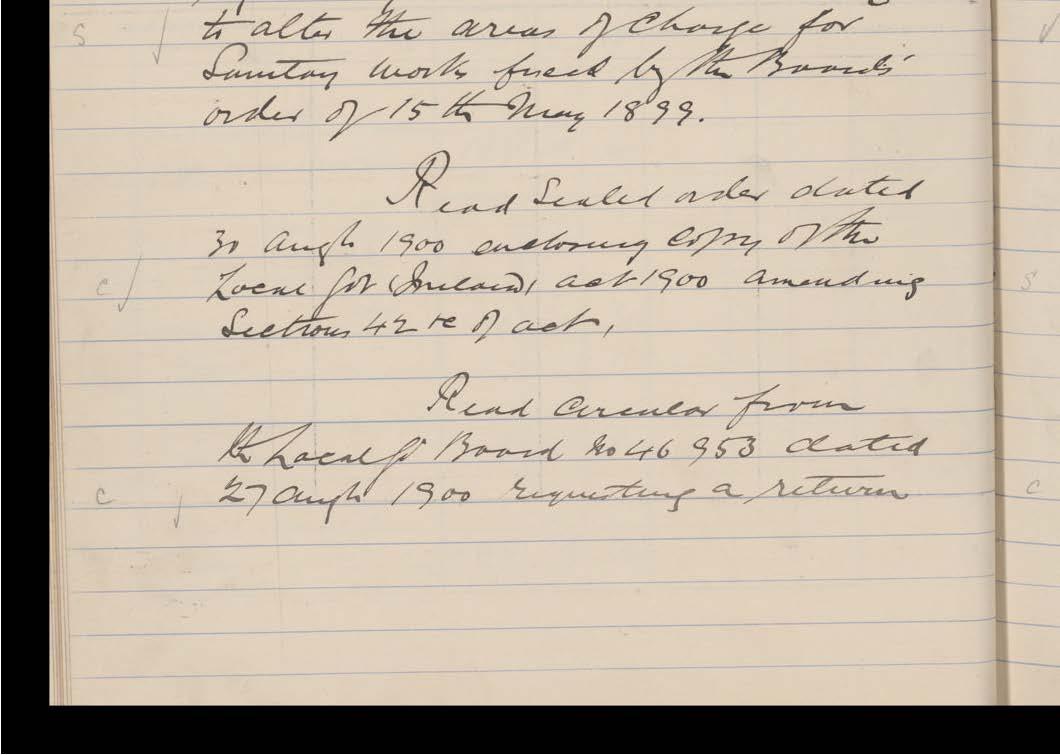 to alter the areas of Charge for
Sanitary works fixed by the Boards'
order of 15th May 1899.
Read Sealed order dated
30 Augt 1900 enclosing Copy of the
Local Govt (Ireland) act 1900 amending
Sections 42 &c of act,
Read Circular from
the Local Gt Board No 46 953 dated
27 Augt 1900 requesting a return
S
C
C
S
C